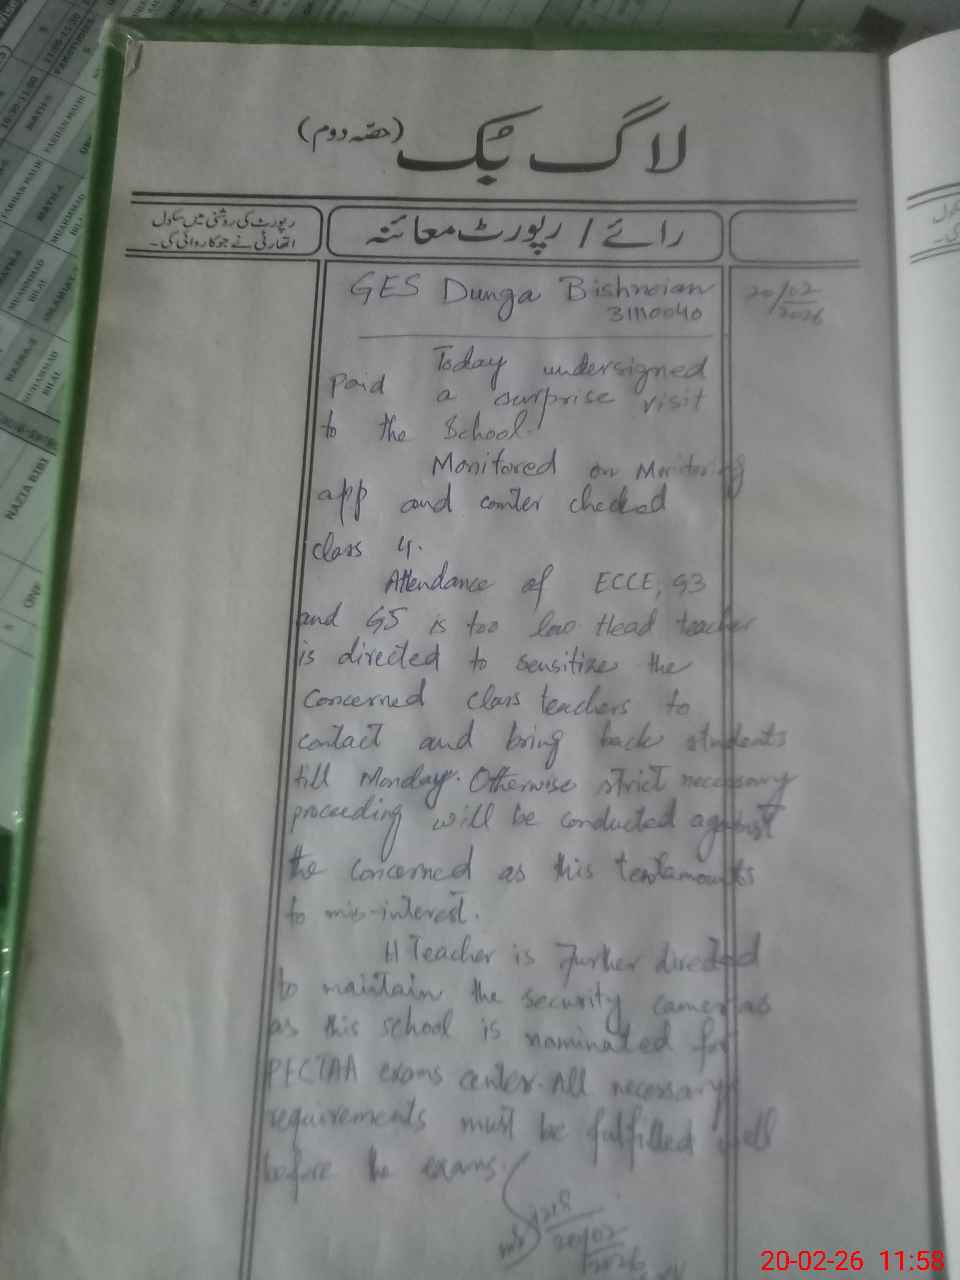 لاگ بُک (حصّہ دوم)
رائے / رپورٹ معائنہ
رپورٹ کی روشنی میں سکول
اتھارٹی نے جو کاروائی کی۔
GES Dunga Bishnoian
31110040
20/02/2026
Today undersigned
paid a surprise visit
to the School.
Monitored on Monitoring
app and counter checked
class 4.
Attendance of ECCE, G3
and G5 is too low. Head teacher
is directed to sensitize the
concerned class teachers to
contact and bring back students
till Monday. Otherwise strict necessary
proceeding will be conducted against
the concerned as this tentamounts
to mis-interest.
H Teacher is further directed
to maintain the security cameras
as this school is nominated for
PECTAA exams center. All necessary
requirements must be fulfilled well
before the exams.
20/02
2026
MATHS
FARHAN MALIK
MUHAMMAD
BILAL
NAZIA BIBI
20-02-26 11:58